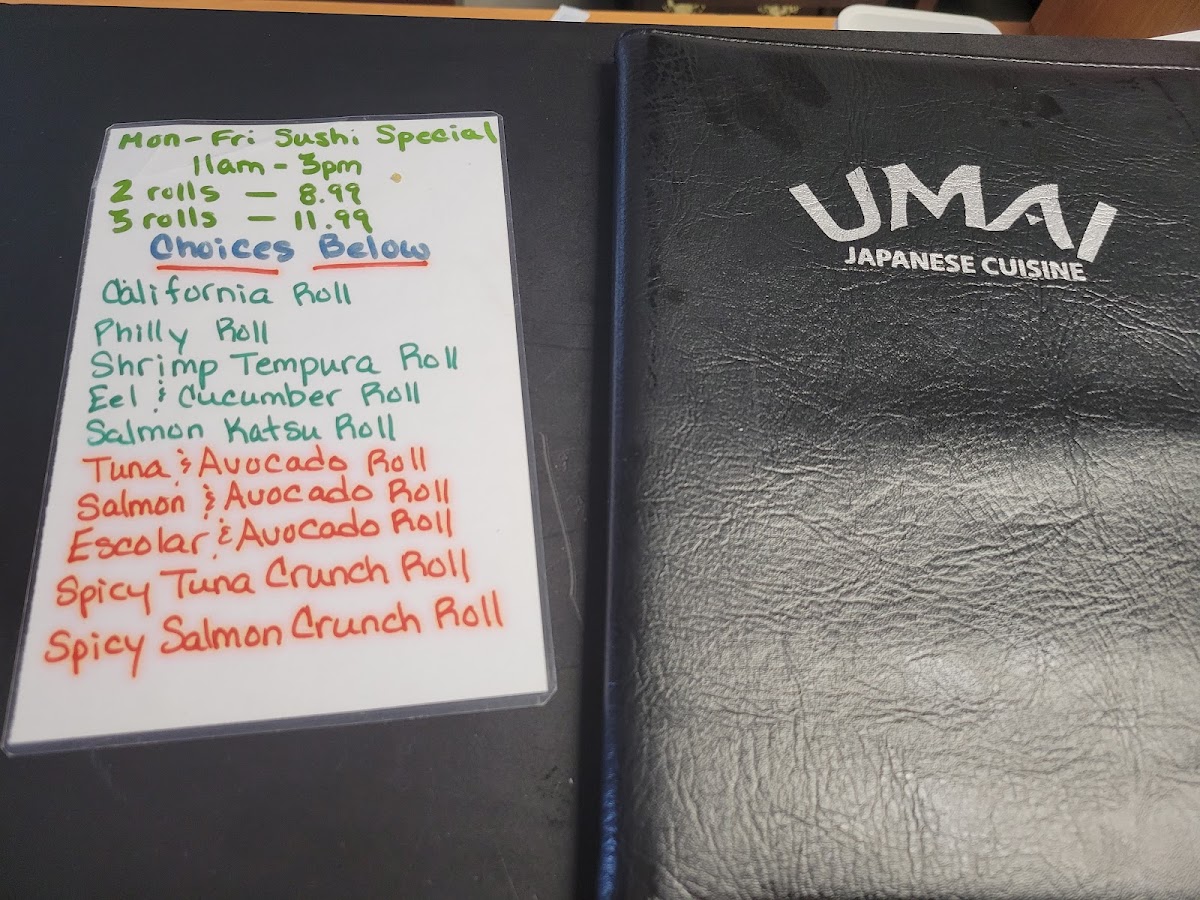 Mon-Fri Sushi Special
11am - 3pm
2 rolls — 8.99
3 rolls — 11.99
Choices Below
California Roll
Philly Roll
Shrimp Tempura Roll
Eel & Cucumber Roll
Salmon Katsu Roll
Tuna & Avocado Roll
Salmon & Avocado Roll
Escolar & Avocado Roll
Spicy Tuna Crunch Roll
Spicy Salmon Crunch Roll
UMAI
JAPANESE CUISINE